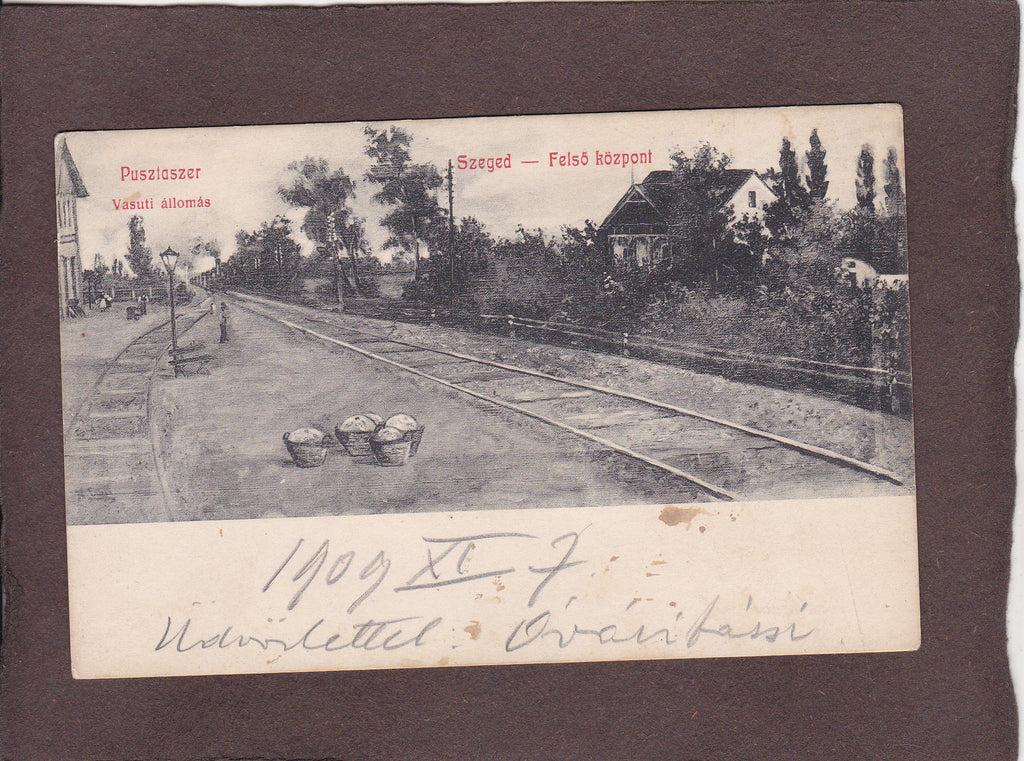 Pusztaszer
Vasuti állomás
Szeged — Felső központ
1909 XI 7.
Üdvözlettel